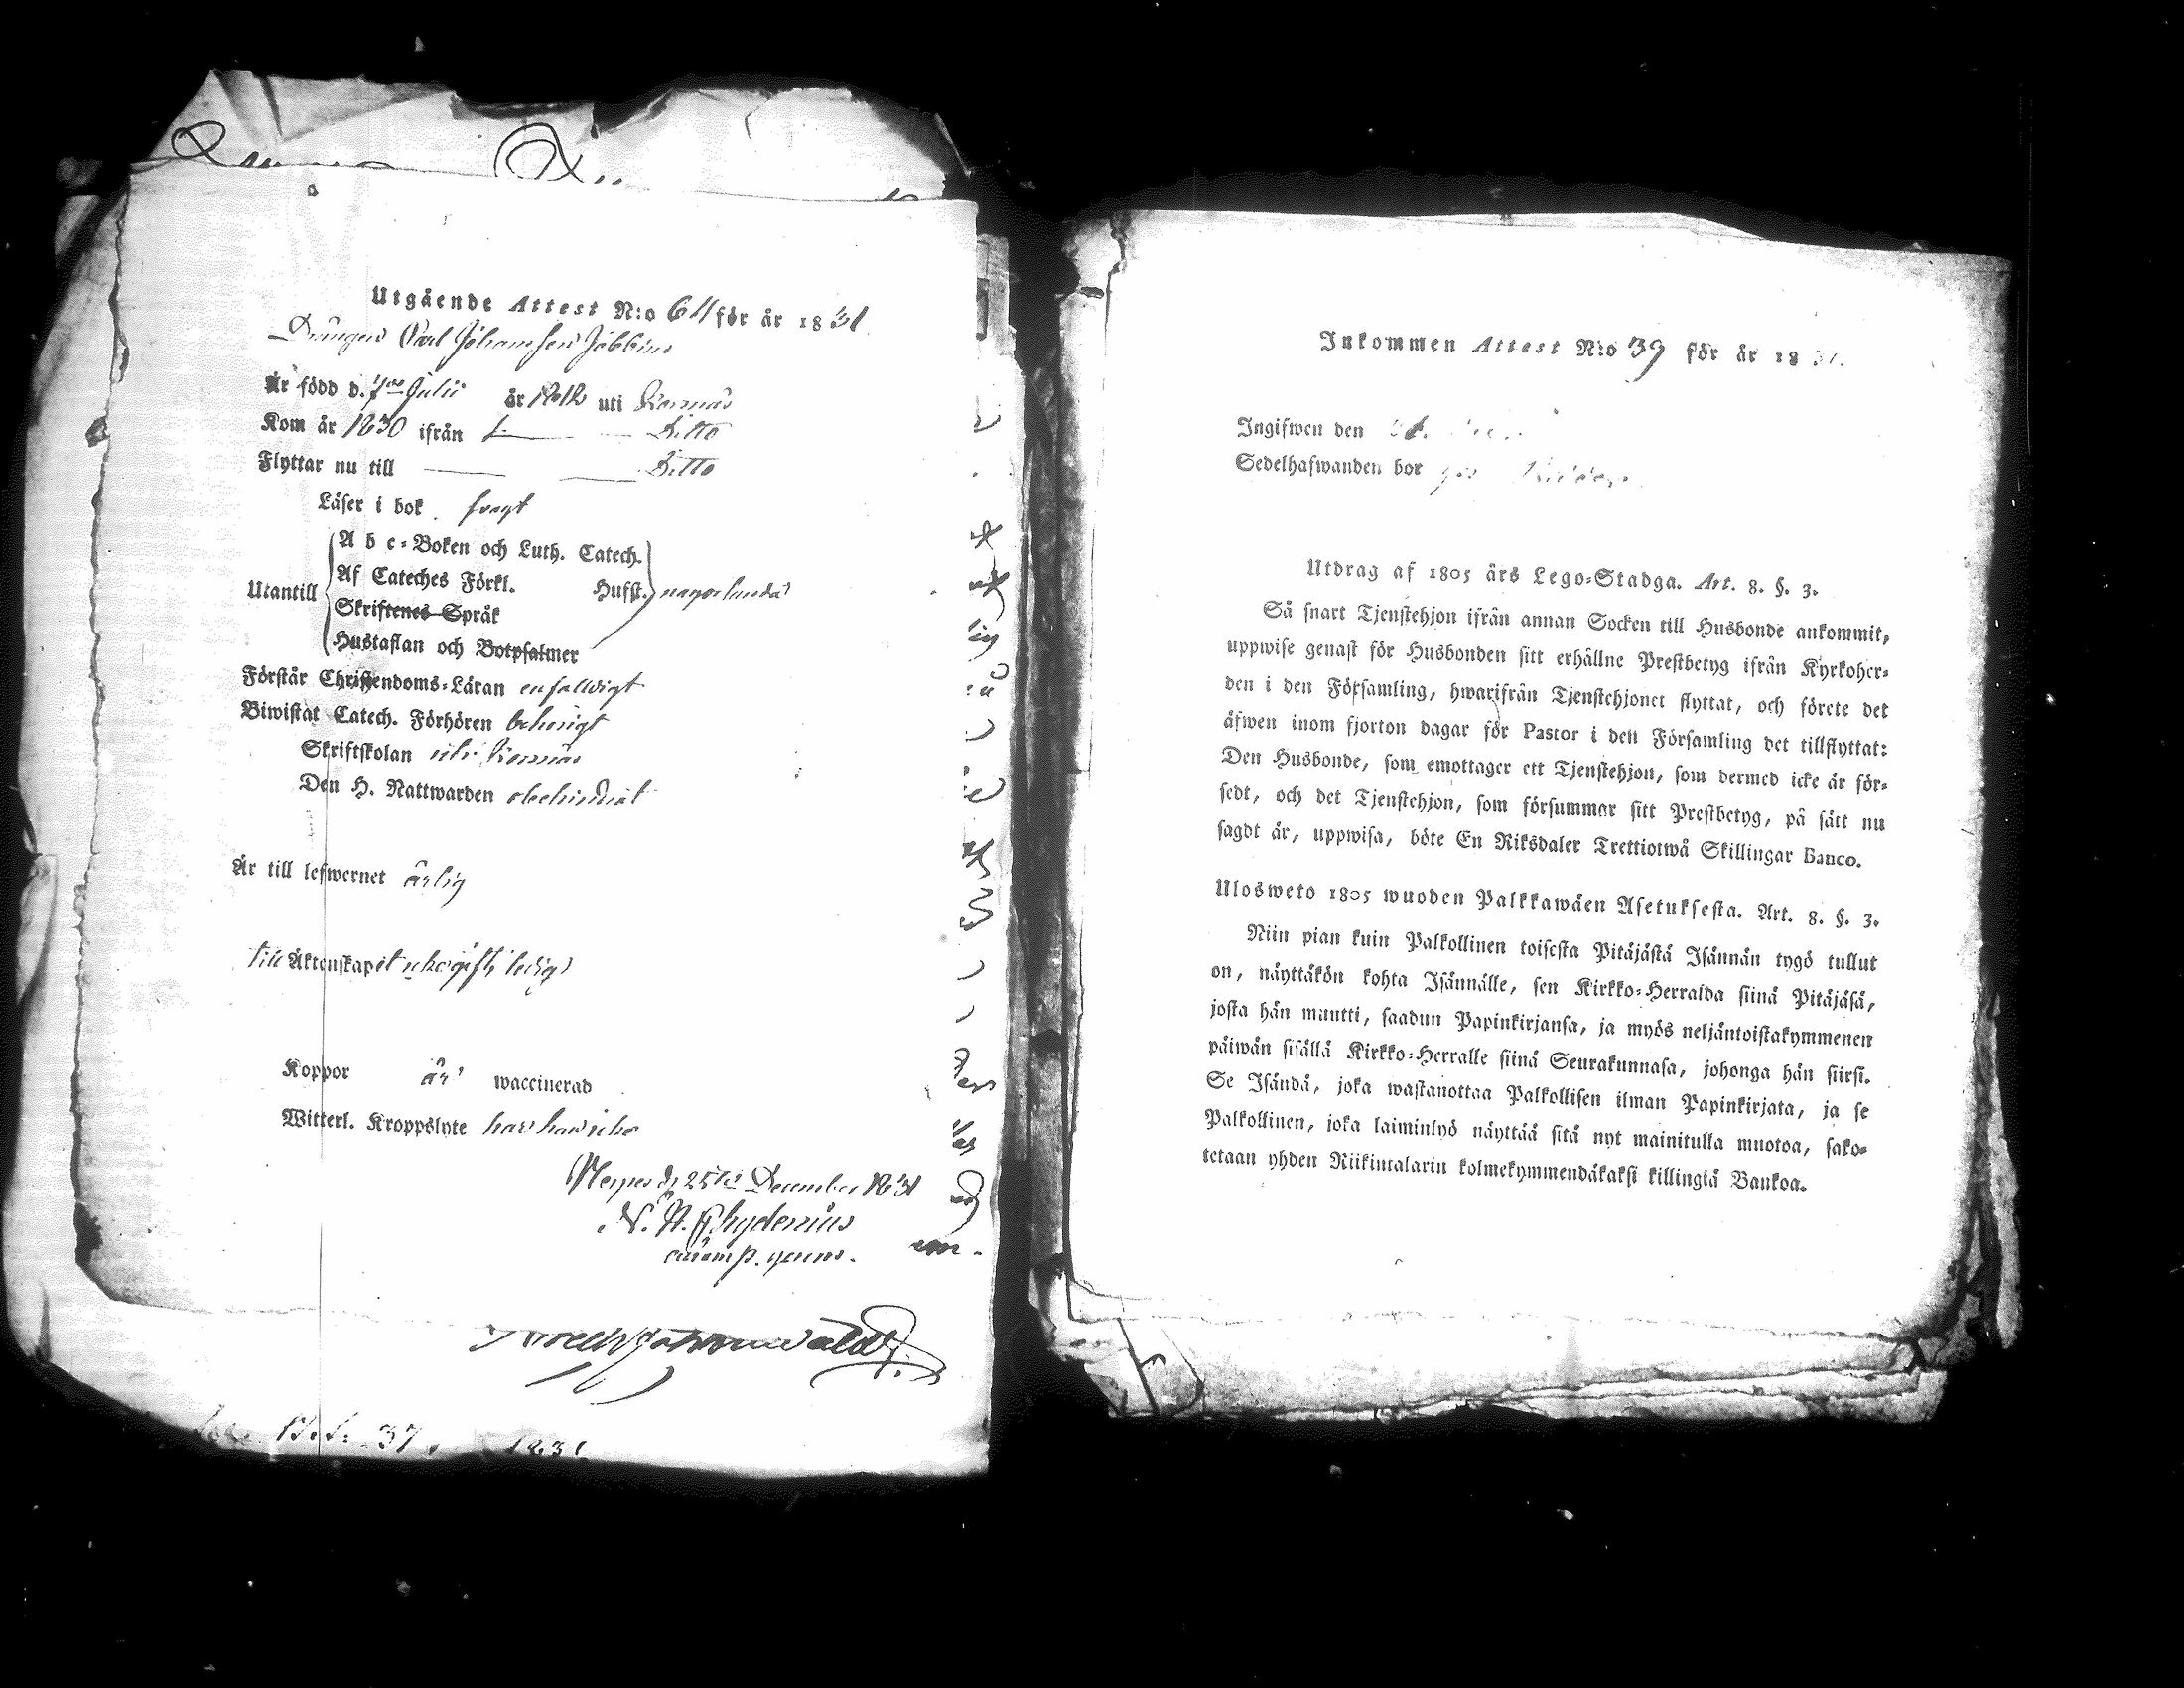 Utgående Attest N:o 64 för år 1831
Drängen Carl Johansson
Är född d. 7de Julii år 1812 uti Kornäs
Kom år 1830 ifrån Ditto
Flyttar nu till Ditto
Läser i bok svagt
A b c-Boken och Luth. Catech.
Af Cateches Förkl. Husst.
Utantill någorlunda
Skriftenes Språk
Hustaflan och Botpsalmer
Förstår Christendoms-Läran enfaldigt
Biwistat Catech. Förhören behörigt
Skriftskolan uti Kornäs
Den H. Nattwarden obehindrat
Är till lefwernet ärlig
till Äktenskapet ledig
Koppor är waccinerad
Witterl. Kroppslyte har han icke
d. 25te December 1831
N. A. Chydenius
37. 1831
Inkommen Attest N:o 39 för år 1831.
Ingifwen den
Sedelhafwanden bor
Utdrag af 1805 års Lego-Stadga. Art. 8. §. 3.
Så snart Tjenstehjon ifrån annan Socken till Husbonde ankommit,
uppwise genast för Husbonden sitt erhållne Prestbetyg ifrån Kyrkoher-
den i den Församling, hwarifrån Tjenstehjonet flyttat, och förete det
äfwen inom fjorton dagar för Pastor i den Församling det tillflyttat:
Den Husbonde, som emottager ett Tjenstehjon, som dermed icke är för-
sedt, och det Tjenstehjon, som försummar sitt Prestbetyg, på sätt nu
sagdt är, uppwisa, böte En Riksdaler Trettiotwå Skillingar Banco.
Ulosweto 1805 wuoden Palkkawäen Asetuksesta. Art. 8. §. 3.
Niin pian kuin Palkollinen toisesta Pitäjästä Isännän tygö tullut
on, näyttäkön kohta Isännälle, sen Kirkko-Herralda siinä Pitäjäsä,
josta hän muutti, saadun Papinkirjansa, ja myös neljäntoistakymmenen
päiwän sisällä Kirkko-Herralle siinä Seurakunnasa, johonga hän siirsi.
Se Isändä, joka wastanottaa Palkollisen ilman Papinkirjata, ja se
Palkollinen, joka laiminlyö näyttää sitä nyt mainitulla muotoa, sako-
tetaan yhden Riikintalarin kolmekymmendäkaksi killingiä Bankoa.